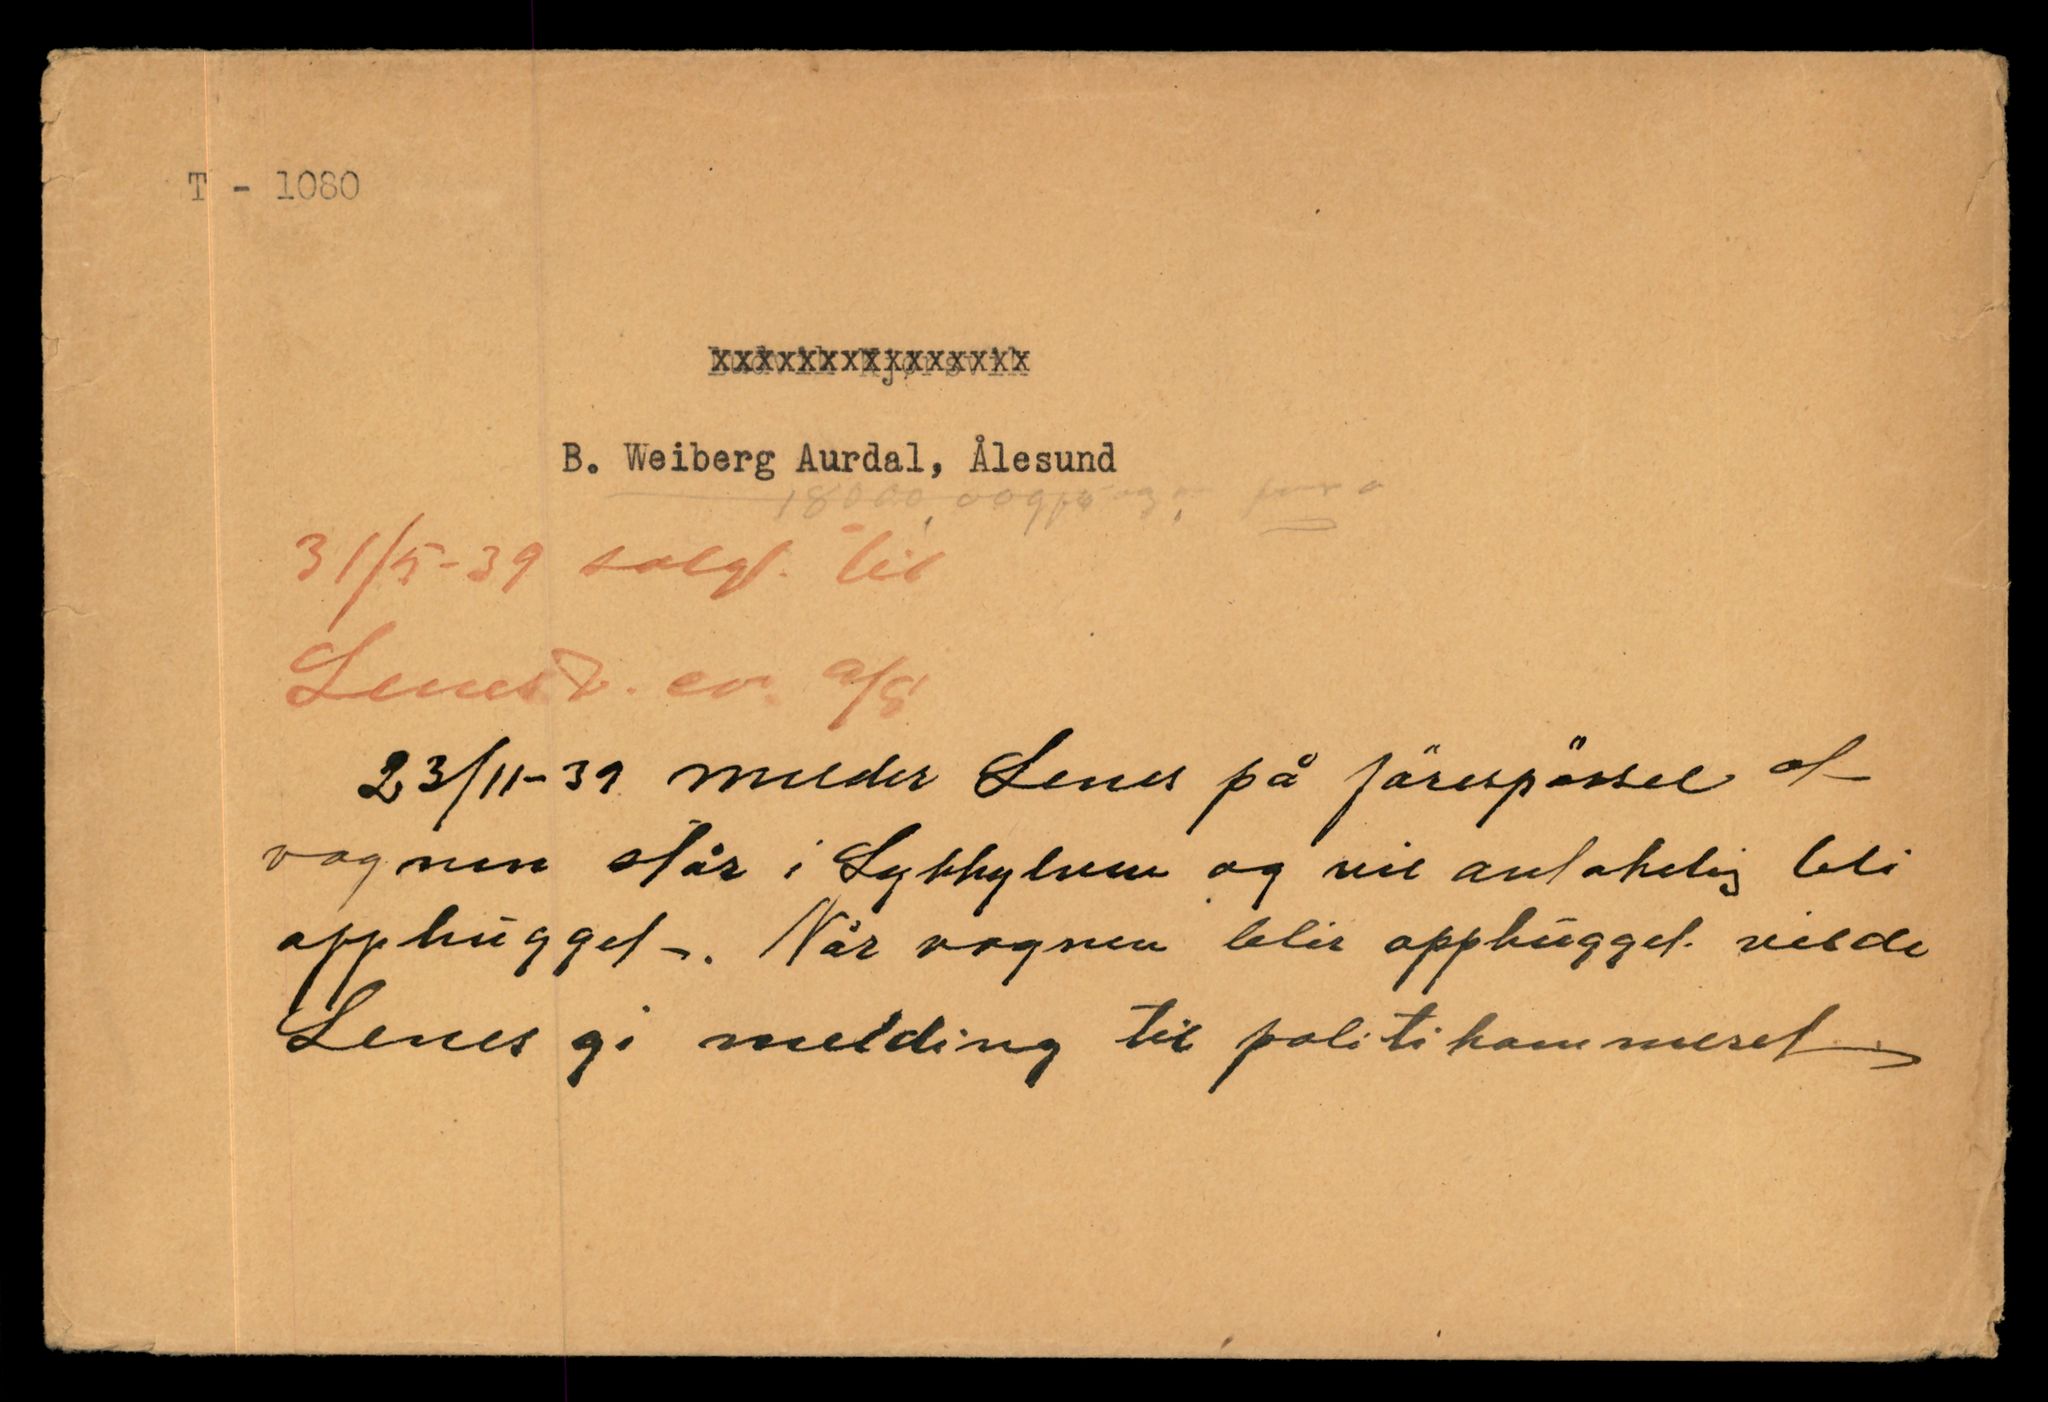 T - 1080
xxxxxxxxxxxxxxx
B. Weiberg Aurdal, Ålesund
31/5-39 solgt til
Lenes a/s
23/11-39 melder Lenes på förespörsel at
vognen står i Sykkylven og vil antakelig bli
opphugget. Når vognen blir opphugget vilde
Lenes gi melding til politikammeret